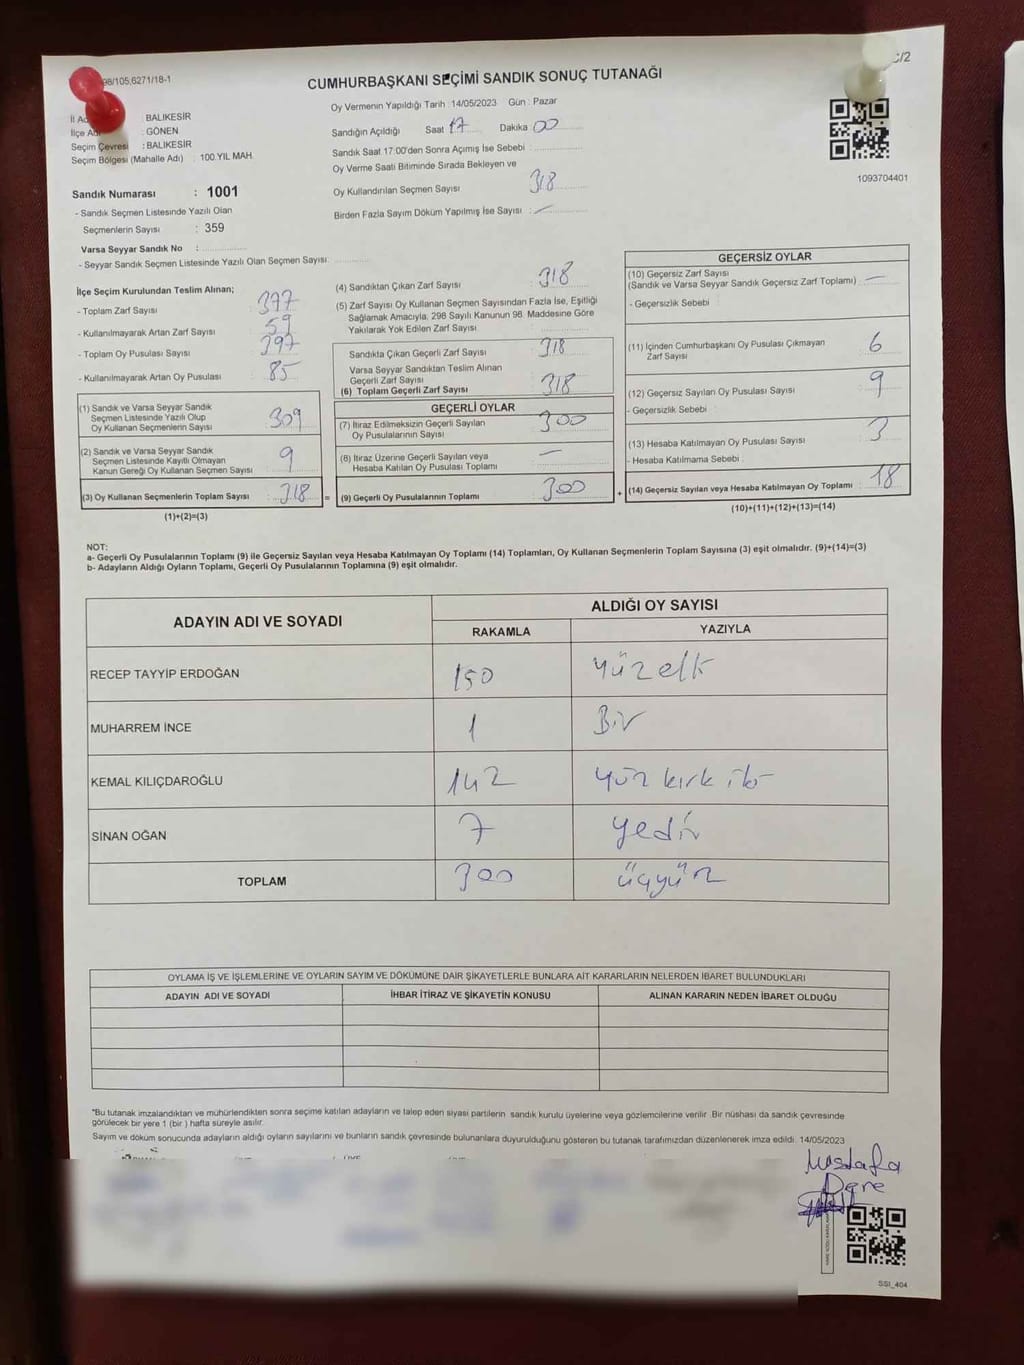 98/105.6271/18-1
/2
CUMHURBAŞKANI SEÇİMİ SANDIK SONUÇ TUTANAĞI
İl Adı : BALIKESİR
İlçe Adı : GÖNEN
Seçim Çevresi : BALIKESİR
Seçim Bölgesi (Mahalle Adı) : 100.YIL MAH.
Sandık Numarası : 1001
- Sandık Seçmen Listesinde Yazılı Olan
Seçmenlerin Sayısı : 359
Varsa Seyyar Sandık No :
- Seyyar Sandık Seçmen Listesinde Yazılı Olan Seçmen Sayısı:
Oy Vermenin Yapıldığı Tarih : 14/05/2023 Gün : Pazar
Sandığın Açıldığı Saat 17 Dakika 00
Sandık Saat 17:00'den Sonra Açımış İse Sebebi :
Oy Verme Saati Bitiminde Sırada Bekleyen ve
Oy Kullandırılan Seçmen Sayısı 318
Birden Fazla Sayım Döküm Yapılmış İse Sayısı : —
1093704401
İlçe Seçim Kurulundan Teslim Alınan;
- Toplam Zarf Sayısı : 377
- Kullanılmayarak Artan Zarf Sayısı : 59
- Toplam Oy Pusulası Sayısı : 397
- Kullanılmayarak Artan Oy Pusulası : 85
(1) Sandık ve Varsa Seyyar Sandık
Seçmen Listesinde Yazılı Olup
Oy Kullanan Seçmenlerin Sayısı : 309
(2) Sandık ve Varsa Seyyar Sandık
Seçmen Listesinde Kayıtlı Olmayan
Kanun Gereği Oy Kullanan Seçmen Sayısı : 9
(3) Oy Kullanan Seçmenlerin Toplam Sayısı : 318
(1)+(2)=(3)
=
(4) Sandıktan Çıkan Zarf Sayısı : 318
(5) Zarf Sayısı Oy Kullanan Seçmen Sayısından Fazla İse, Eşitliği
Sağlamak Amacıyla, 298 Sayılı Kanunun 98. Maddesine Göre
Yakılarak Yok Edilen Zarf Sayısı :
Sandıkta Çıkan Geçerli Zarf Sayısı : 318
Varsa Seyyar Sandıktan Teslim Alınan
Geçerli Zarf Sayısı
(6) Toplam Geçerli Zarf Sayısı : 318
GEÇERLİ OYLAR
(7) İtiraz Edilmeksizin Geçerli Sayılan
Oy Pusulalarının Sayısı : 300
(8) İtiraz Üzerine Geçerli Sayılan veya
Hesaba Katılan Oy Pusulası Toplamı : —
(9) Geçerli Oy Pusulalarının Toplamı : 300
+
GEÇERSİZ OYLAR
(10) Geçersiz Zarf Sayısı
(Sandık ve Varsa Seyyar Sandık Geçersiz Zarf Toplamı) : —
- Geçersizlik Sebebi :
(11) İçinden Cumhurbaşkanı Oy Pusulası Çıkmayan
Zarf Sayısı : 6
(12) Geçersiz Sayılan Oy Pusulası Sayısı : 9
- Geçersizlik Sebebi :
(13) Hesaba Katılmayan Oy Pusulası Sayısı : 3
- Hesaba Katılmama Sebebi :
(14) Geçersiz Sayılan veya Hesaba Katılmayan Oy Toplamı : 18
(10)+(11)+(12)+(13)=(14)
NOT:
a- Geçerli Oy Pusulalarının Toplamı (9) ile Geçersiz Sayılan veya Hesaba Katılmayan Oy Toplamı (14) Toplamları, Oy Kullanan Seçmenlerin Toplam Sayısına (3) eşit olmalıdır. (9)+(14)=(3)
b- Adayların Aldığı Oyların Toplamı, Geçerli Oy Pusulalarının Toplamına (9) eşit olmalıdır.
ADAYIN ADI VE SOYADI
ALDIĞI OY SAYISI
RAKAMLA YAZIYLA
RECEP TAYYİP ERDOĞAN 150 yüzelli
MUHARREM İNCE 1 Bir
KEMAL KILIÇDAROĞLU 142 yüz kırk iki
SİNAN OĞAN 7 yedi
TOPLAM 300 üçyüz
OYLAMA İŞ VE İŞLEMLERİNE VE OYLARIN SAYIM VE DÖKÜMÜNE DAİR ŞİKAYETLERLE BUNLARA AİT KARARLARIN NELERDEN İBARET BULUNDUKLARI
ADAYIN ADI VE SOYADI İHBAR İTİRAZ VE ŞİKAYETİN KONUSU ALINAN KARARIN NEDEN İBARET OLDUĞU
*Bu tutanak imzalandıktan ve mühürlendikten sonra seçime katılan adayların ve talep eden siyasi partilerin sandık kurulu üyelerine veya gözlemcilerine verilir. Bir nüshası da sandık çevresinde
görülecek bir yere 1 (bir) hafta süreyle asılır.
Sayım ve döküm sonucunda adayların aldığı oyların sayılarını ve bunların sandık çevresinde bulunanlara duyurulduğunu gösteren bu tutanak tarafımızdan düzenlenerek imza edildi. 14/05/2023
Mustafa
Dere
SSI_404